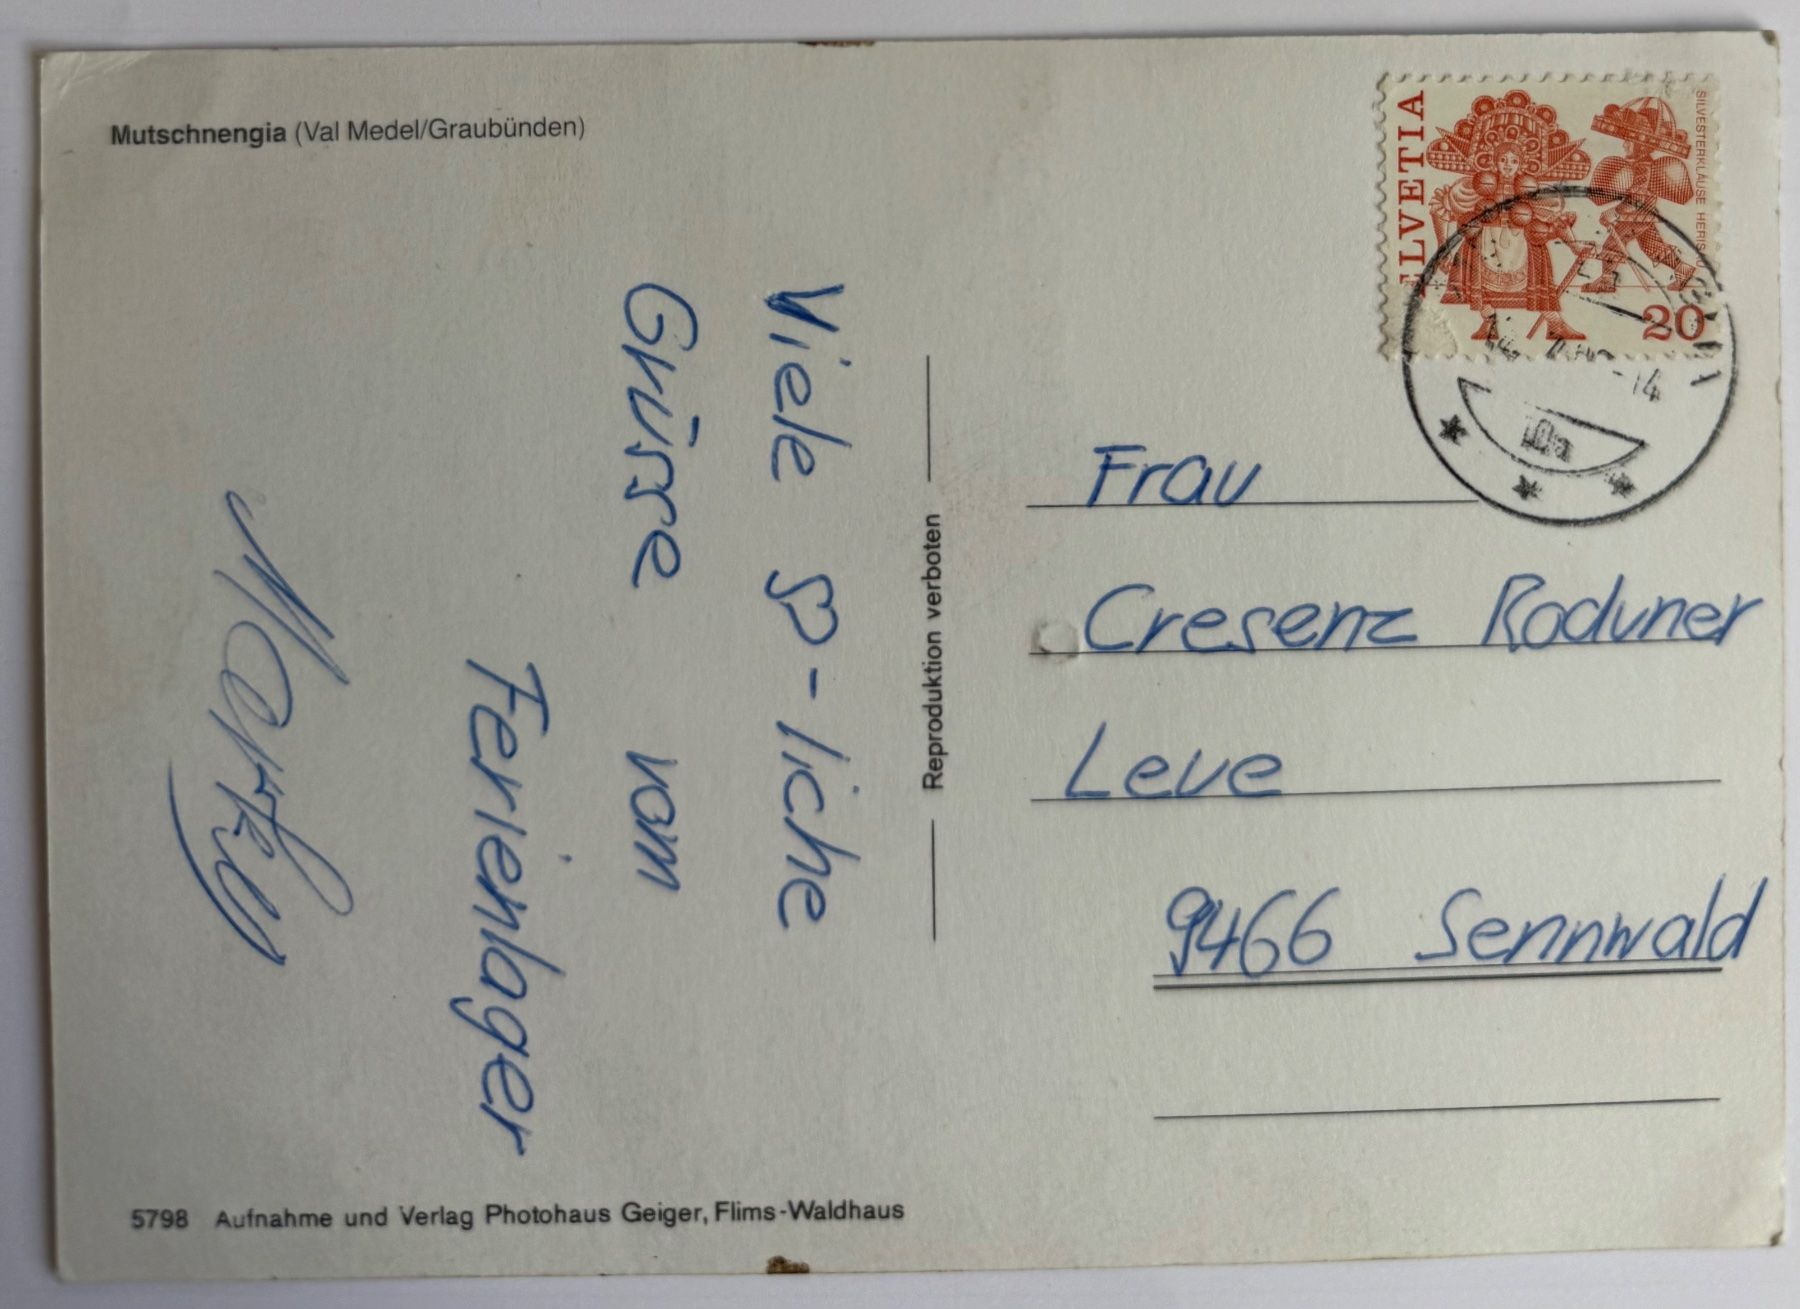 Mutschnengia (Val Medel/Graubünden)
Viele ♡-liche
Grüsse vom
Ferienlager
Reproduktion verboten
HELVETIA
SILVESTERKLÄUSE HERISAU
20
-14
Frau
Cresenz Roduner
Leue
9466 Sennwald
5798 Aufnahme und Verlag Photohaus Geiger, Flims-Waldhaus